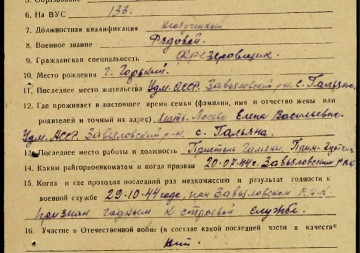 6. На ВУС 133.
7. Должностная квалификация необученный
8. Военное звание Рядовой.
9. Гражданская специальность Фрезеровщик.
10. Место рождения г. Горький.
11. Последнее место жительства Удм. АССР. Завьяловский р-н. с. Гальяна.
12. Где проживает в настоящее время семья (фамилия, имя и отчество жены или
родителей и точный их адрес) мать, Елена Васильевна
Удм. АССР. Завьяловский р-н с. Гальяна.
13. Последнее место работы и должность Пристань Гальяны,
14. Каким райгорвоенкоматом и когда призван 20.07.44г. Завьяловским РВК
15. Когда и где проходил последний раз медкомиссию и результат годности к
военной службе 29.10.44 года, при Завьяловском Р.В.К
признан годным к строевой службе.
16. Участие в Отечественной войне (в составе какой последней части в качеств
Нет.